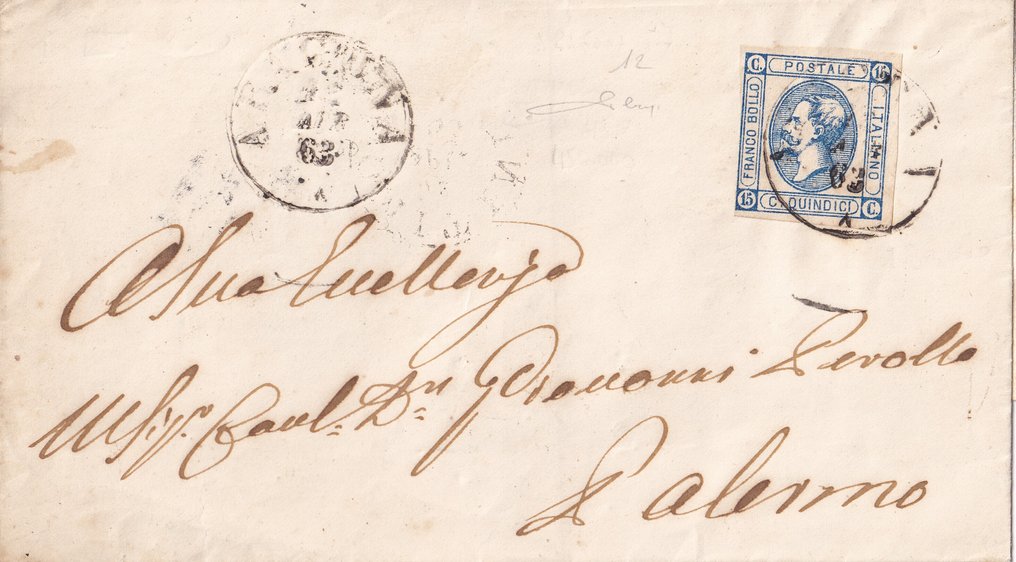 12
C. POSTALE 15
FRANCO BOLLO
ITALIANO
15 C. QUINDICI C.
63
63
A Sua Eccellenza
Ill Sigr. Caval. Dn Giovanni Perollo
Palermo